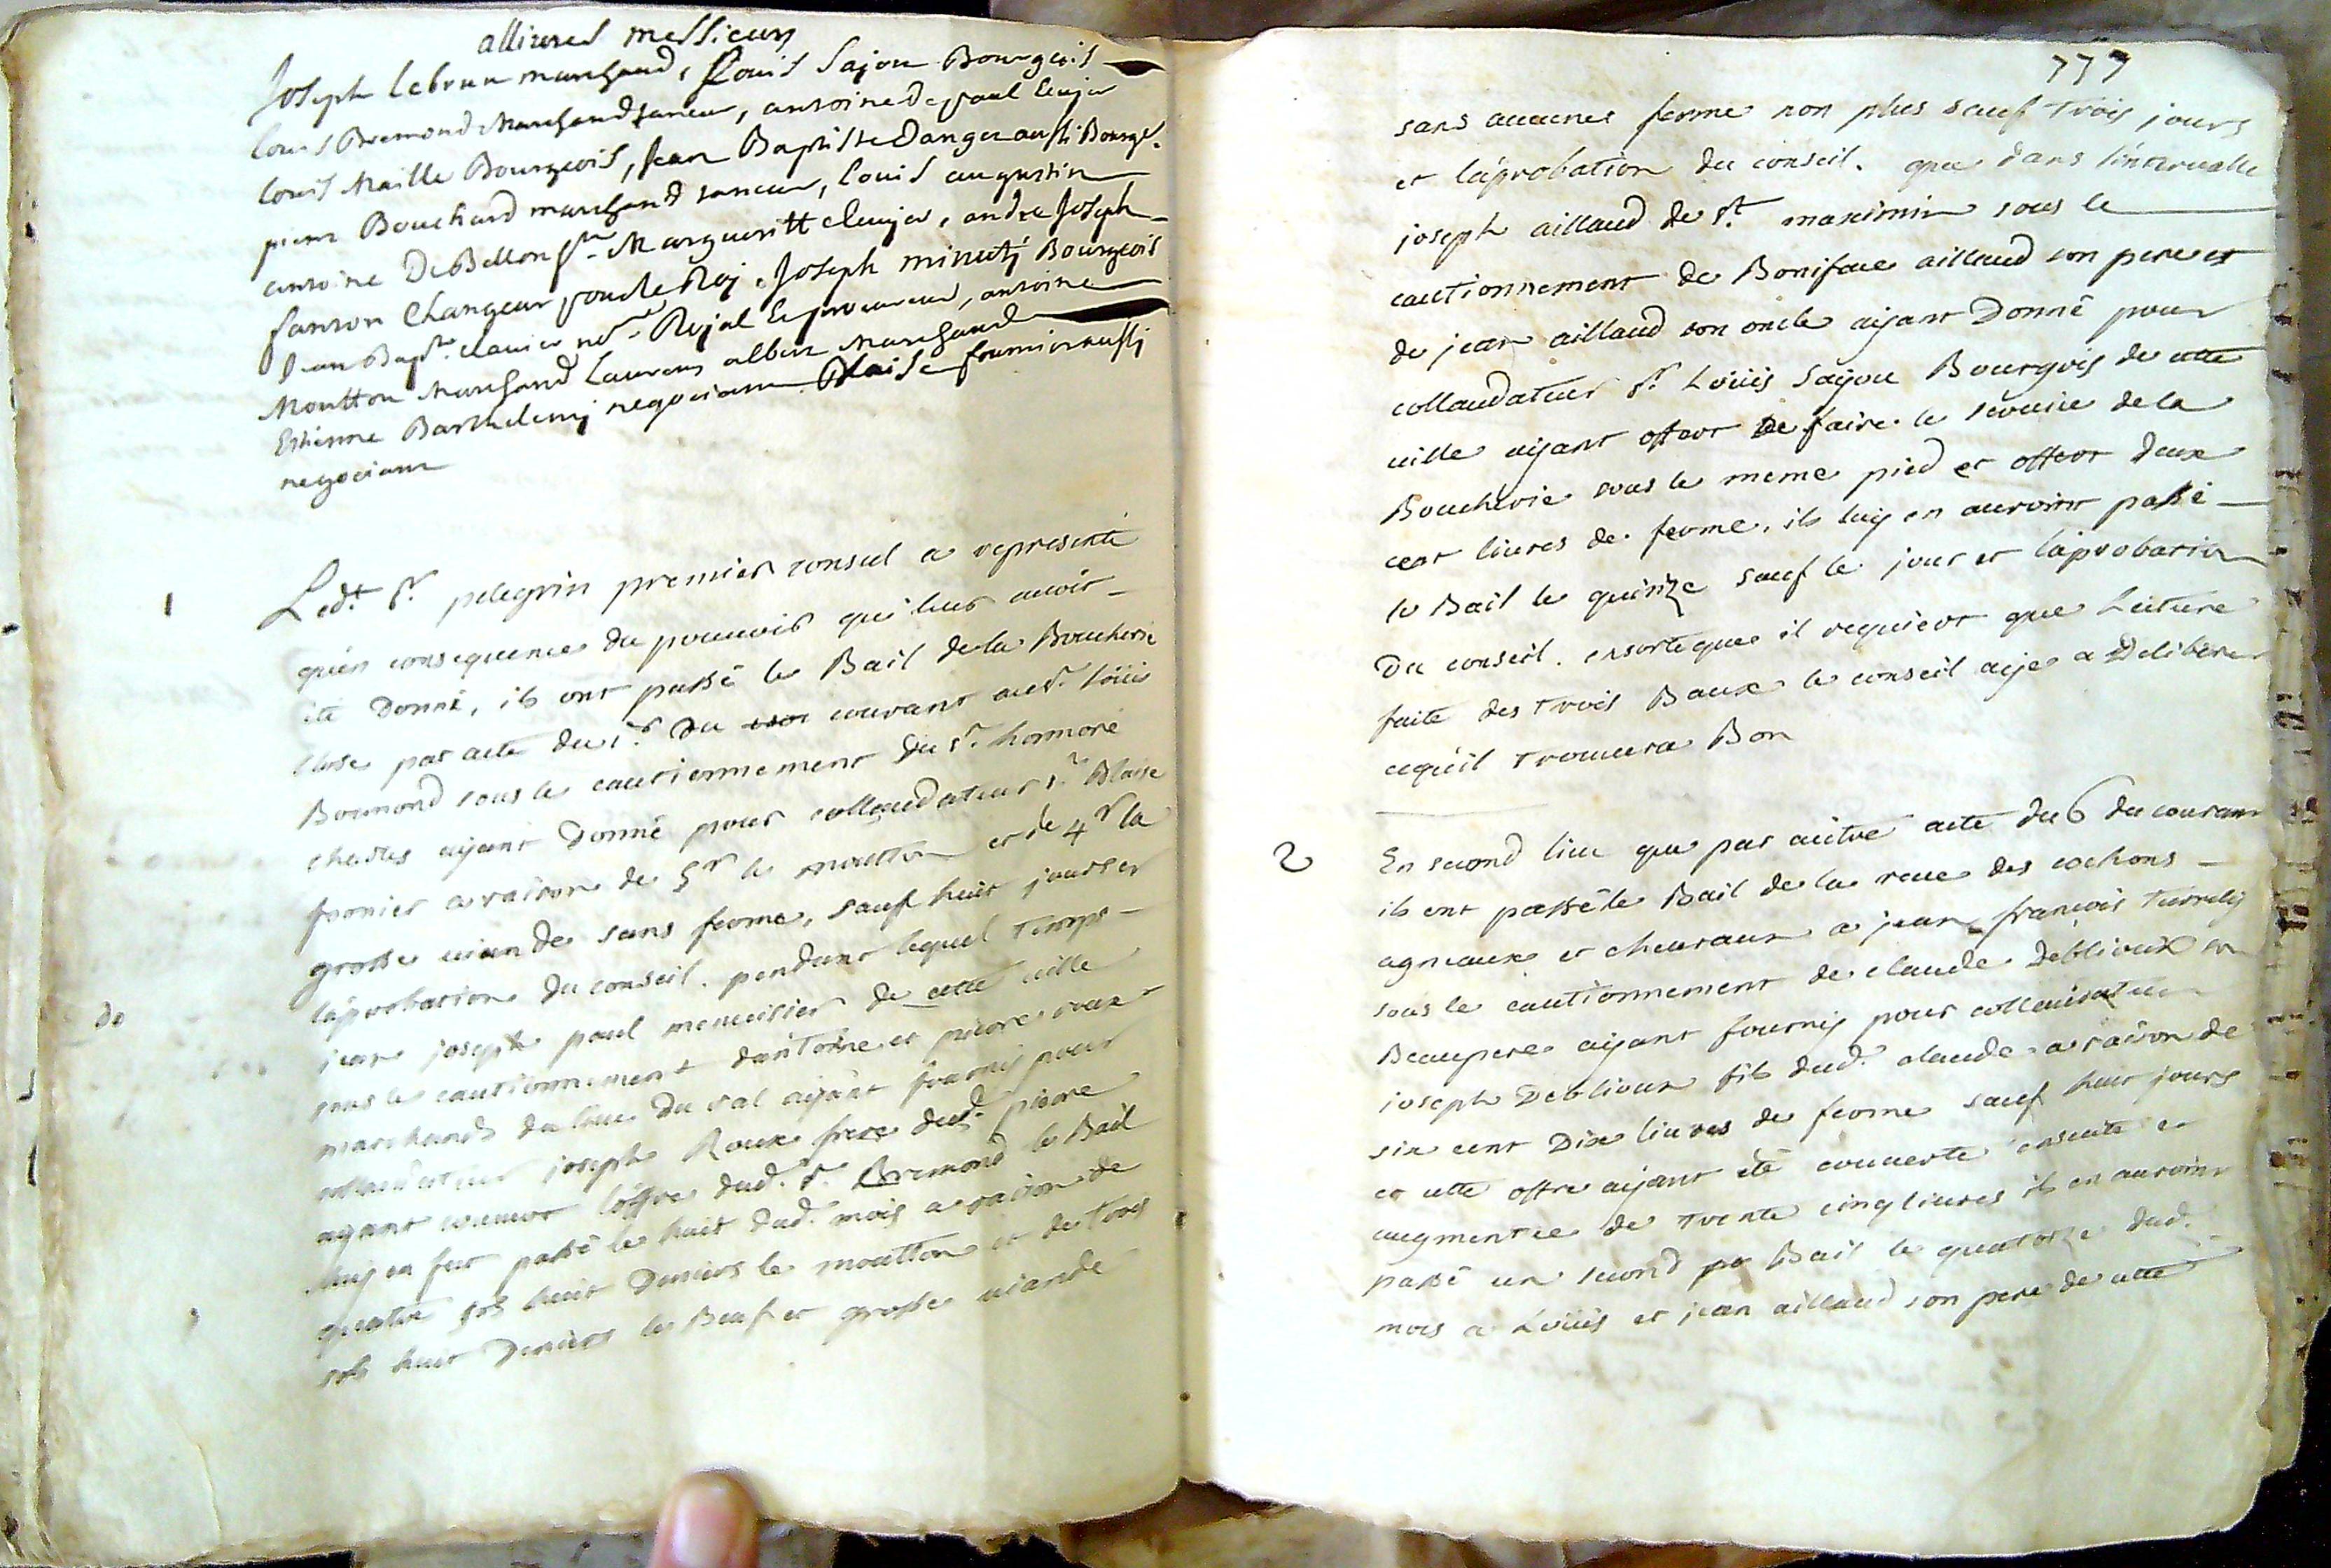 alliures messieurs
Joseph Lebrun marchand, Louis Sajou Bourgeois
Louis Bremond Marchand taneur, antoine de paul Ecuyer
Louis Maille Bourgeois, Jean Baptiste Danger aussi Bourg.s
pierre Bouchard marchand taneur, Louis augustin
antoine De Bellon S.te Margueritte Ecuyer, andre Joseph
fanton Changeur pour le Roj, Joseph minuty Bourgeois
Jean Bap.te clavier no.re Rojal et procureur, antoine
Moutton Marchand Laurens albert Marchand
Estienne Barthelemy negociant Blaise fournier aussy
negociant
1
Led.t S.r pelegrin premier consul a representé
qu'en consequence du pouvoir qui leur avoit
eté Donné, ils ont passé le Bail de la Boucherie
close par acte du 1.er du courant aud.t Loüis
Bremond sous le cautionnement du s.r honnoré
cheilus aijant Donné pour collaudateur s.r Blaise
fornier a raison de 5 s le moutton et de 4 s la
grosse viande sans ferme, sauf huit jours et
l'aprobation du conseil. pendant lequel temps
jean joseph paul menuisier de cette ville
do
sous le cautionnement d'antoine et pierre roux
marchands du lieu du val aijant fournij pour
collaudateur joseph Roux frere dud. pierre
ayant couvert l'offre dud. s.r Bremond le Bail
luij en fut passé le huit dud. mois a raison de
quatre sols huit Deniers le moutton et de trois
sols huit Deniers le Beuf et grosse viande
777
sans aucune ferme non plus sauf trois jours
et l'aprobation du conseil. que dans l'intervalle
joseph aillaud de S.t maximin sous le
cautionnement de Boniface aillaud son pere et
de jean aillaud son oncle aijant Donné pour
collaudateur S.r Loüis Sajou Bourgois de cette
ville aijant offert de faire le service de la
Boucherie sous le meme pied et offert deux
cent livres de ferme, ils luij en auroint passé
le Bail le quinze sauf le jour et l'aprobation
Du conseil. ensorte que il requiert que Lecture
faite des trois Baux le conseil aije a Deliberer
cequ'il trouvera Bon
2
En second lieu que par autre acte du 6 du courant
ils ont passé le Bail de la reve des cochons
agneaux et chevraux a jean françois
sous le cautionnement de claude Deblieux son
Beaupere aijant fournij pour collaudateur
joseph Deblieux fils dud. claude a raison de
six cent Dix livres de ferme sauf huit jours
et cette offre aijant eté couverte ensuite et
augmentée de trente cinq livres ils en auroint
passé un second Bail le quatorze dud.
mois a Loüis et jean aillaud son pere de cette